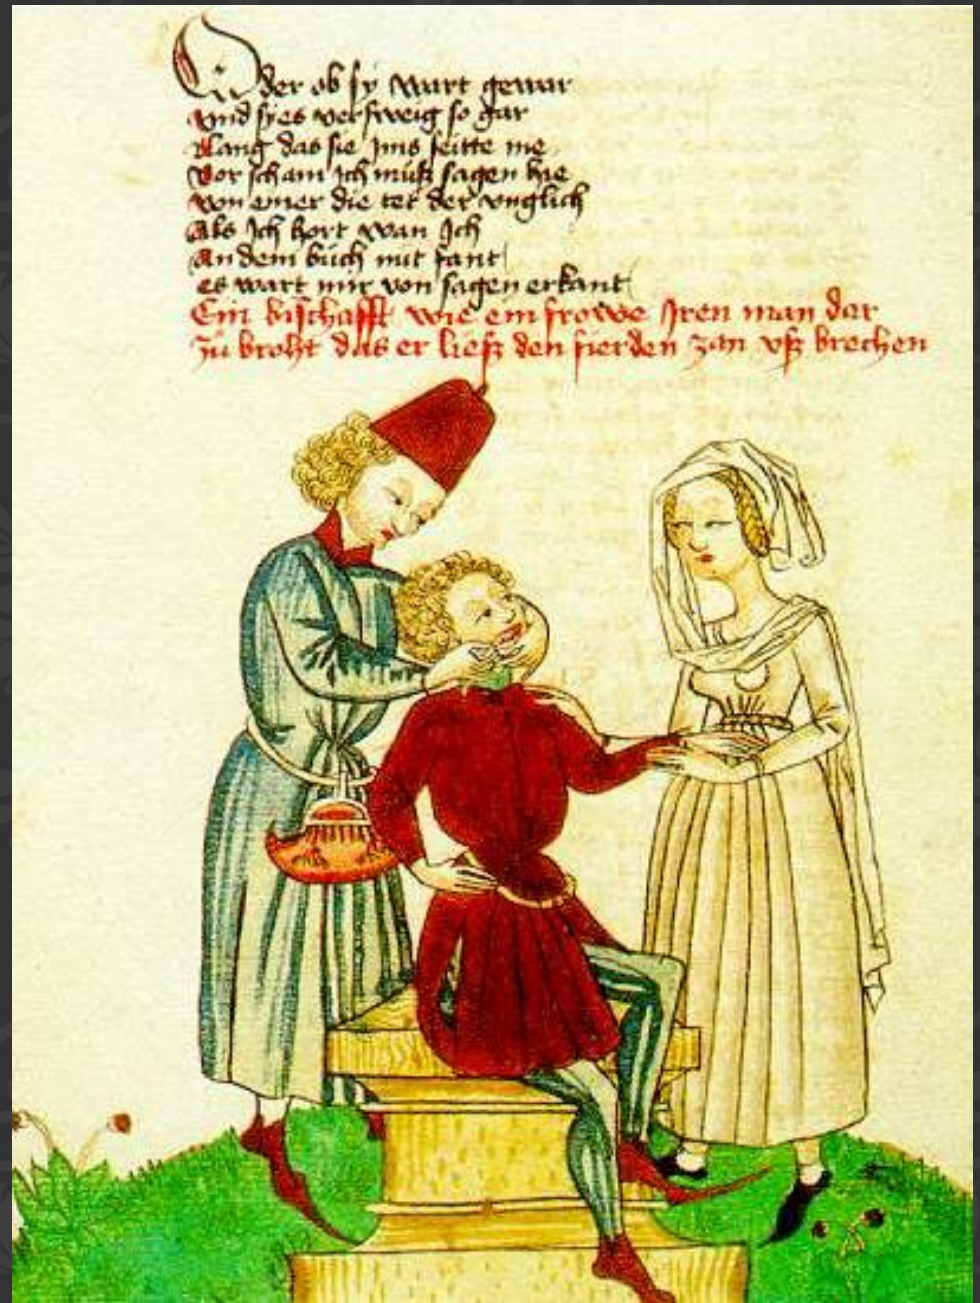 Oder ob sy wart gewar
Und sy es versweig so gar
Lang das sie ims seitte nie
Vor scham Ich müß sagen hie
von einer die tet der unglich
Als Ich hort wan Ich
An dem büch nit fant
es wart mir von sagen erkant
Ein bischafft wie ein frowe Iren man dar
zü broht das er ließ den fierden zan uß brechen